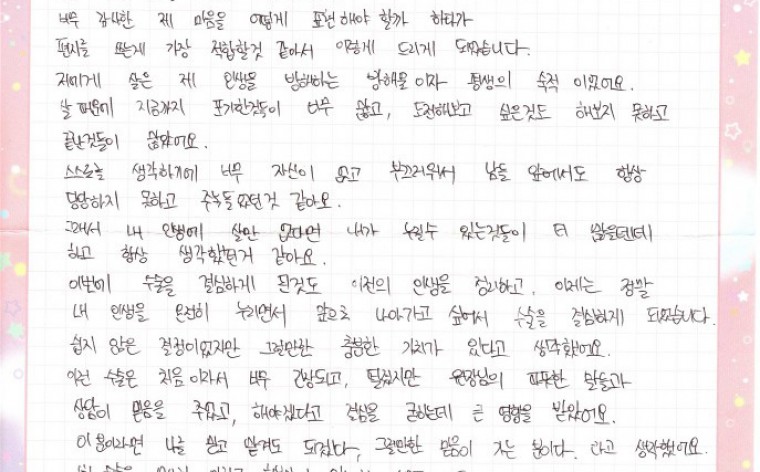 너무 감사한 제 마음을 어떻게 표현해야 할까 하다가
편지를 쓰는게 가장 적합할것 같아서 이렇게 드리게 되었습니다.
저에게 살은 제 인생을 방해하는 방해물이자 평생의 숙적 이었어요.
살 때문에 지금까지 포기한것들이 너무 많고, 도전해보고 싶은것도 해보지 못하고
끝난것들이 많았어요.
스스로 생각하기에 너무 자신이 없고 부끄러워서 남들 앞에서도 항상
당당하지 못하고 주눅들었던것 같아요.
그래서 내 인생에 살만 없다면 내가 누릴수 있는것들이 더 많을텐데
하고 항상 생각했던거 같아요.
이번에 수술을 결심하게 된것도 이전의 인생을 정리하고, 이제는 정말
내 인생을 온전히 누리면서 앞으로 나아가고 싶어서 수술을 결심하게 되었습니다.
쉽지 않은 결정이었지만 그럴만한 충분한 가치가 있다고 생각했어요.
이런 수술은 처음이라서 너무 긴장되고, 떨렸지만 원장님의 따뜻한 말들과
상담이 믿음을 주었고, 해야겠다고 결심을 굳히는데 큰 영향을 받았어요.
이 분이라면 나를 믿고 맡겨도 되겠다, 그럴만한 믿음이 가는 분이다. 라고 생각했어요.